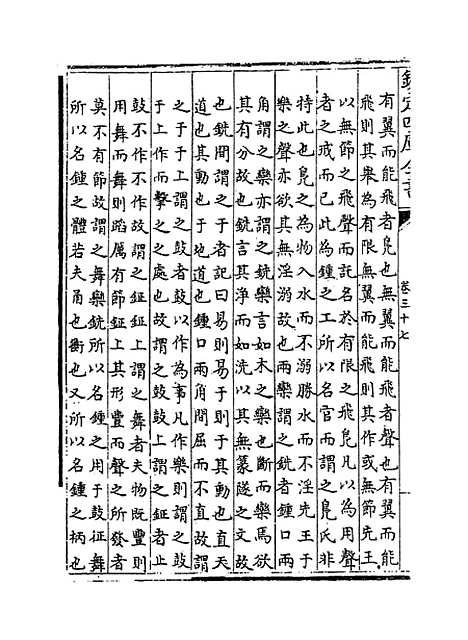 欽定四庫全書
卷三十七
有翼而能飛者鳧也無翼而能飛者聲也有翼而能
飛則其舉為有限無翼而能飛則其作或無節先王
以無節之飛聲而託名於有限之飛鳧凡以為用聲
者之戒而已此為鍾之工所以名官而謂之鳧氏非
特此也鳧之為物入水而不溺勝水而不淫先王于
樂之聲亦欲其無淫溺故也兩欒謂之銑者鍾口兩
角謂之欒亦謂之銑欒言如木之欒也斷而欒焉欲
其有分故也銑言其淨而如洗以其無篆隧之文故
也銑間謂之于者記曰易則易于則于其動也直天
道也其動也于地道也鍾口兩角間屈而不直故謂
之于于上謂之鼓者鼓以作為事凡作樂則謂之鼓
于上作而擊之之處也故謂之鼓鼓上謂之鉦者止
鼓不作不作故謂之鉦鉦上謂之舞者夫物既豐則
用舞而舞則蹈厲有節鉦上其形豐而聲之所發者
莫不有節故謂之舞欒銑所以名鍾之用于鼓征舞
所以名鍾之體若夫甬也衡也又所以名鍾之柄也